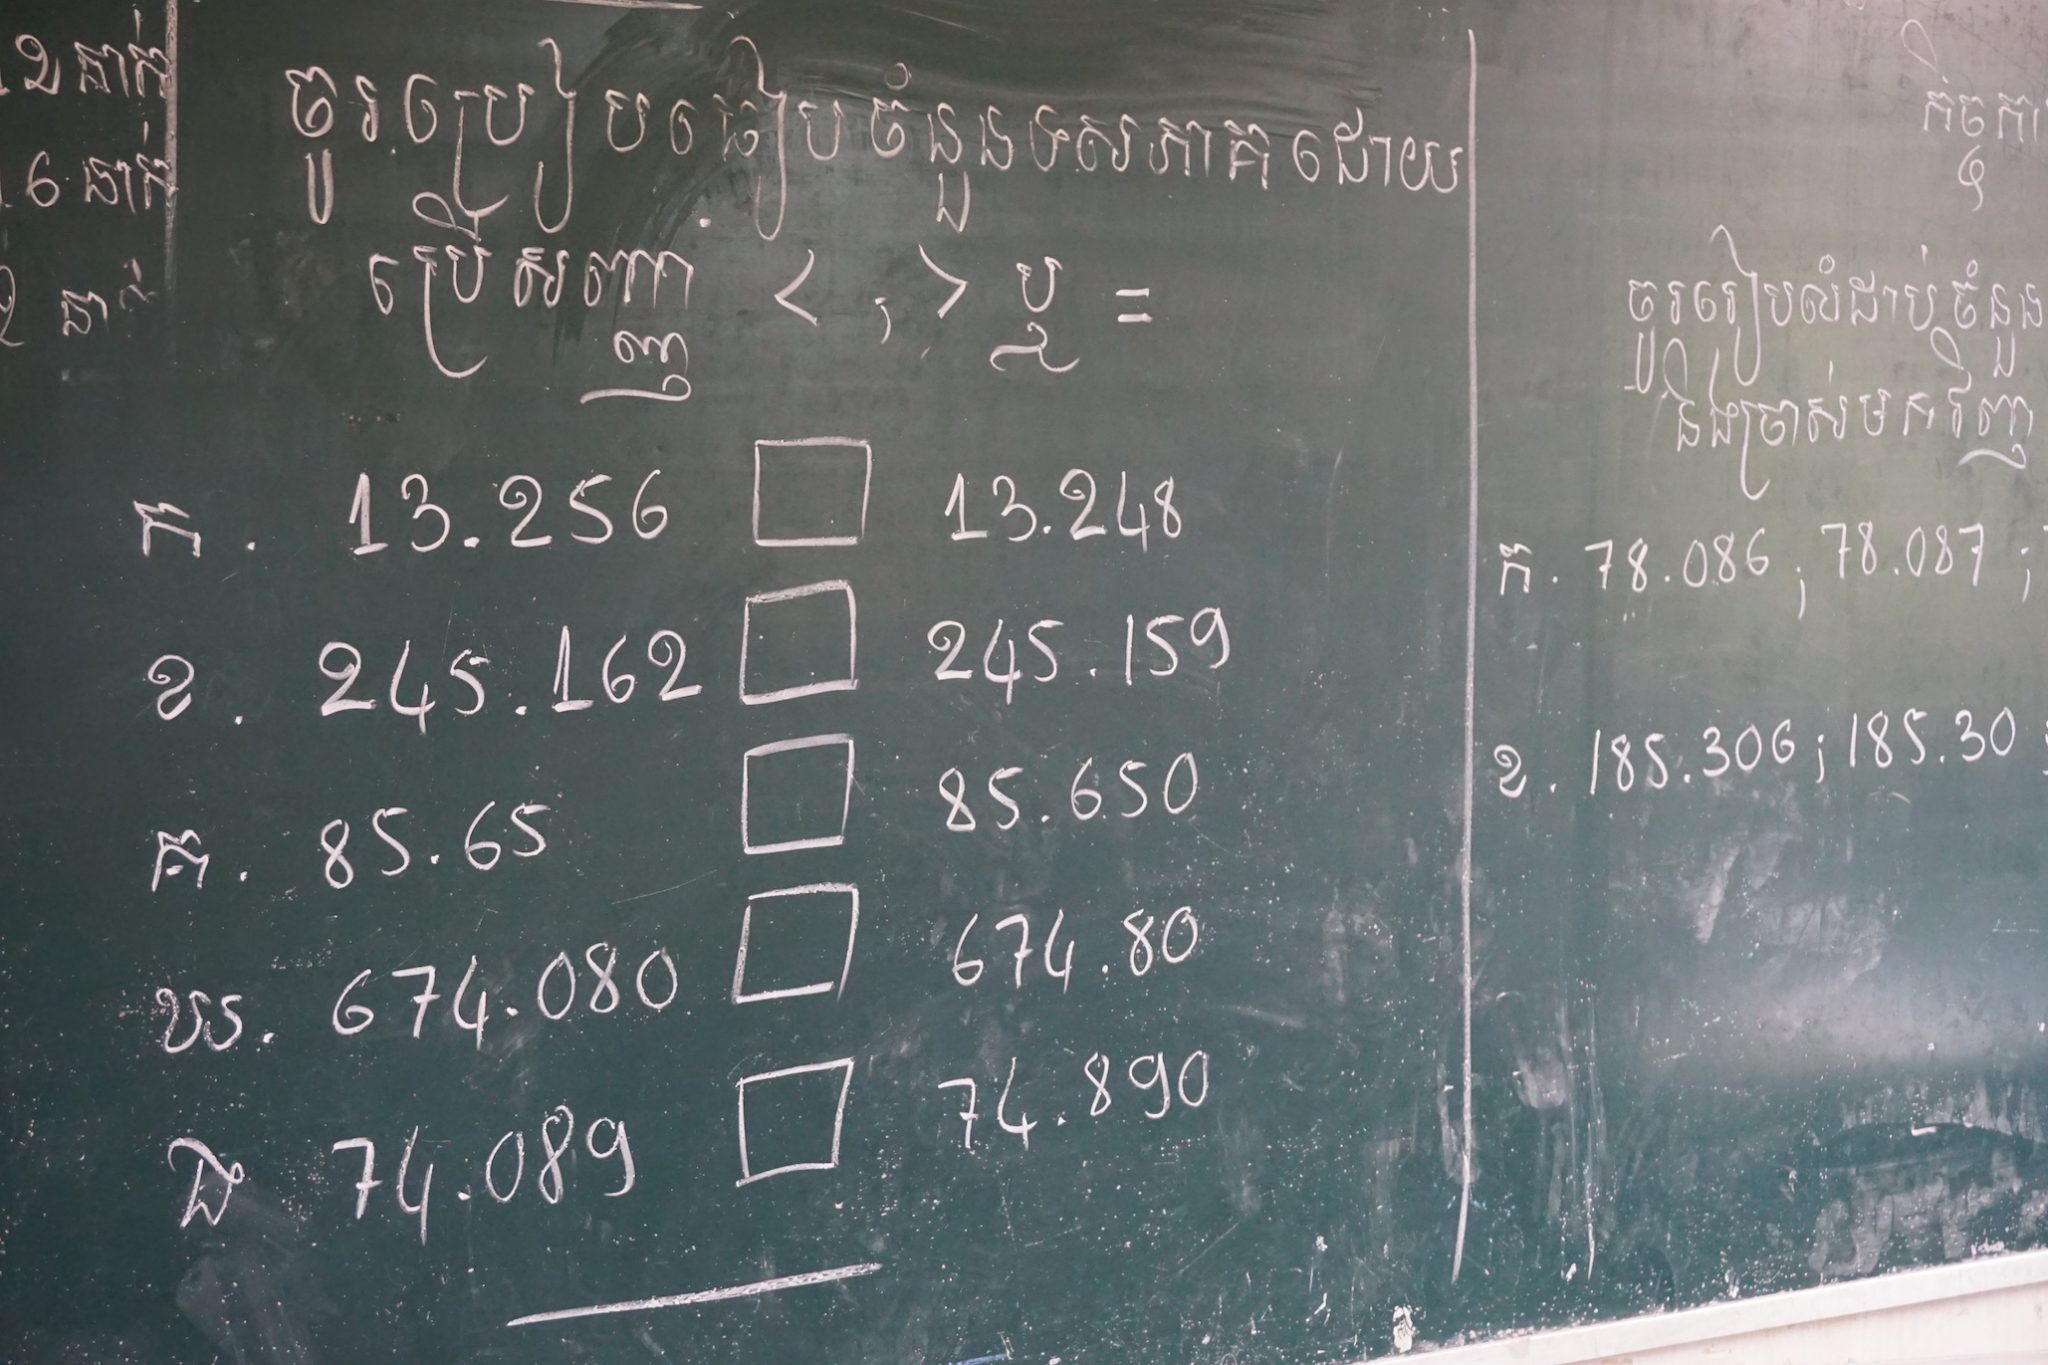 2 នាក់
6 នាក់
2 នាក់
ចូរប្រៀបធៀបចំនួនទសភាគដោយ
ប្រើសញ្ញា < , > ឬ =
ក. 13.256 □ 13.248
ខ. 245.162 □ 245.159
គ. 85.65 □ 85.650
ឃ. 674.080 □ 674.80
ង 74.089 □ 74.890
កិច្ចកា
ចូររៀបលំដាប់ចំនួន
និងច្រាស់មកវិញ
ក. 78.086 ; 78.087 ;
ខ. 185.306 ; 185.30